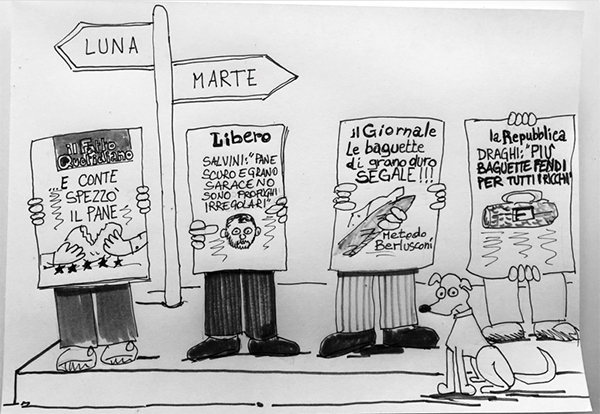 LUNA
MARTE
il Fatto
Quotidiano
E CONTE
SPEZZÒ
IL PANE
Libero
SALVINI: "PANE
SCURO E GRANO
SARACENO
SONO PROFUGHI
IRREGOLARI"
il Giornale
Le baguette
di grano duro
SEGALE!!!
Metodo
Berlusconi
la Repubblica
DRAGHI: "PIÙ
BAGUETTE FENDI
PER TUTTI I RICCHI"